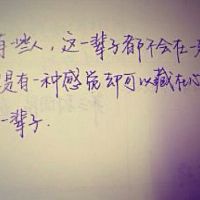 有一些人，这一辈子都不会在一
是有一种感觉却可以藏在心
一辈子.